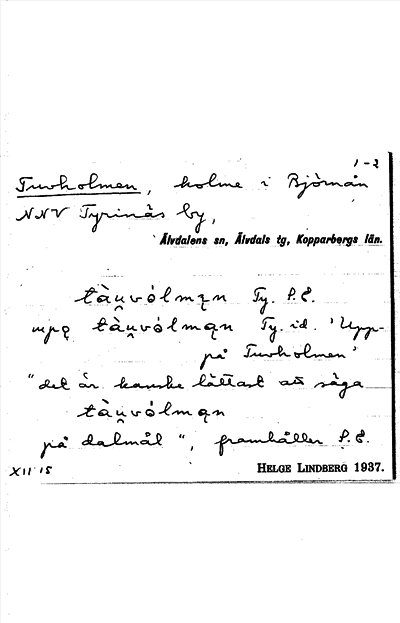 1-2
Tuvholmen, holme i Björnån
NNV Tyrinäs by,
Älvdalens sn, Älvdals tg, Kopparbergs län.
tàu̯vólmən Ty. P.E.
upo̢ tàu̯vólmən Ty. id. 'Upp-
på Tuvholmen'
"det är kanske lättast att säga
tàu̯vólmən
på dalmål", framhåller P.E.
XII 15 HELGE LINDBERG 1937.